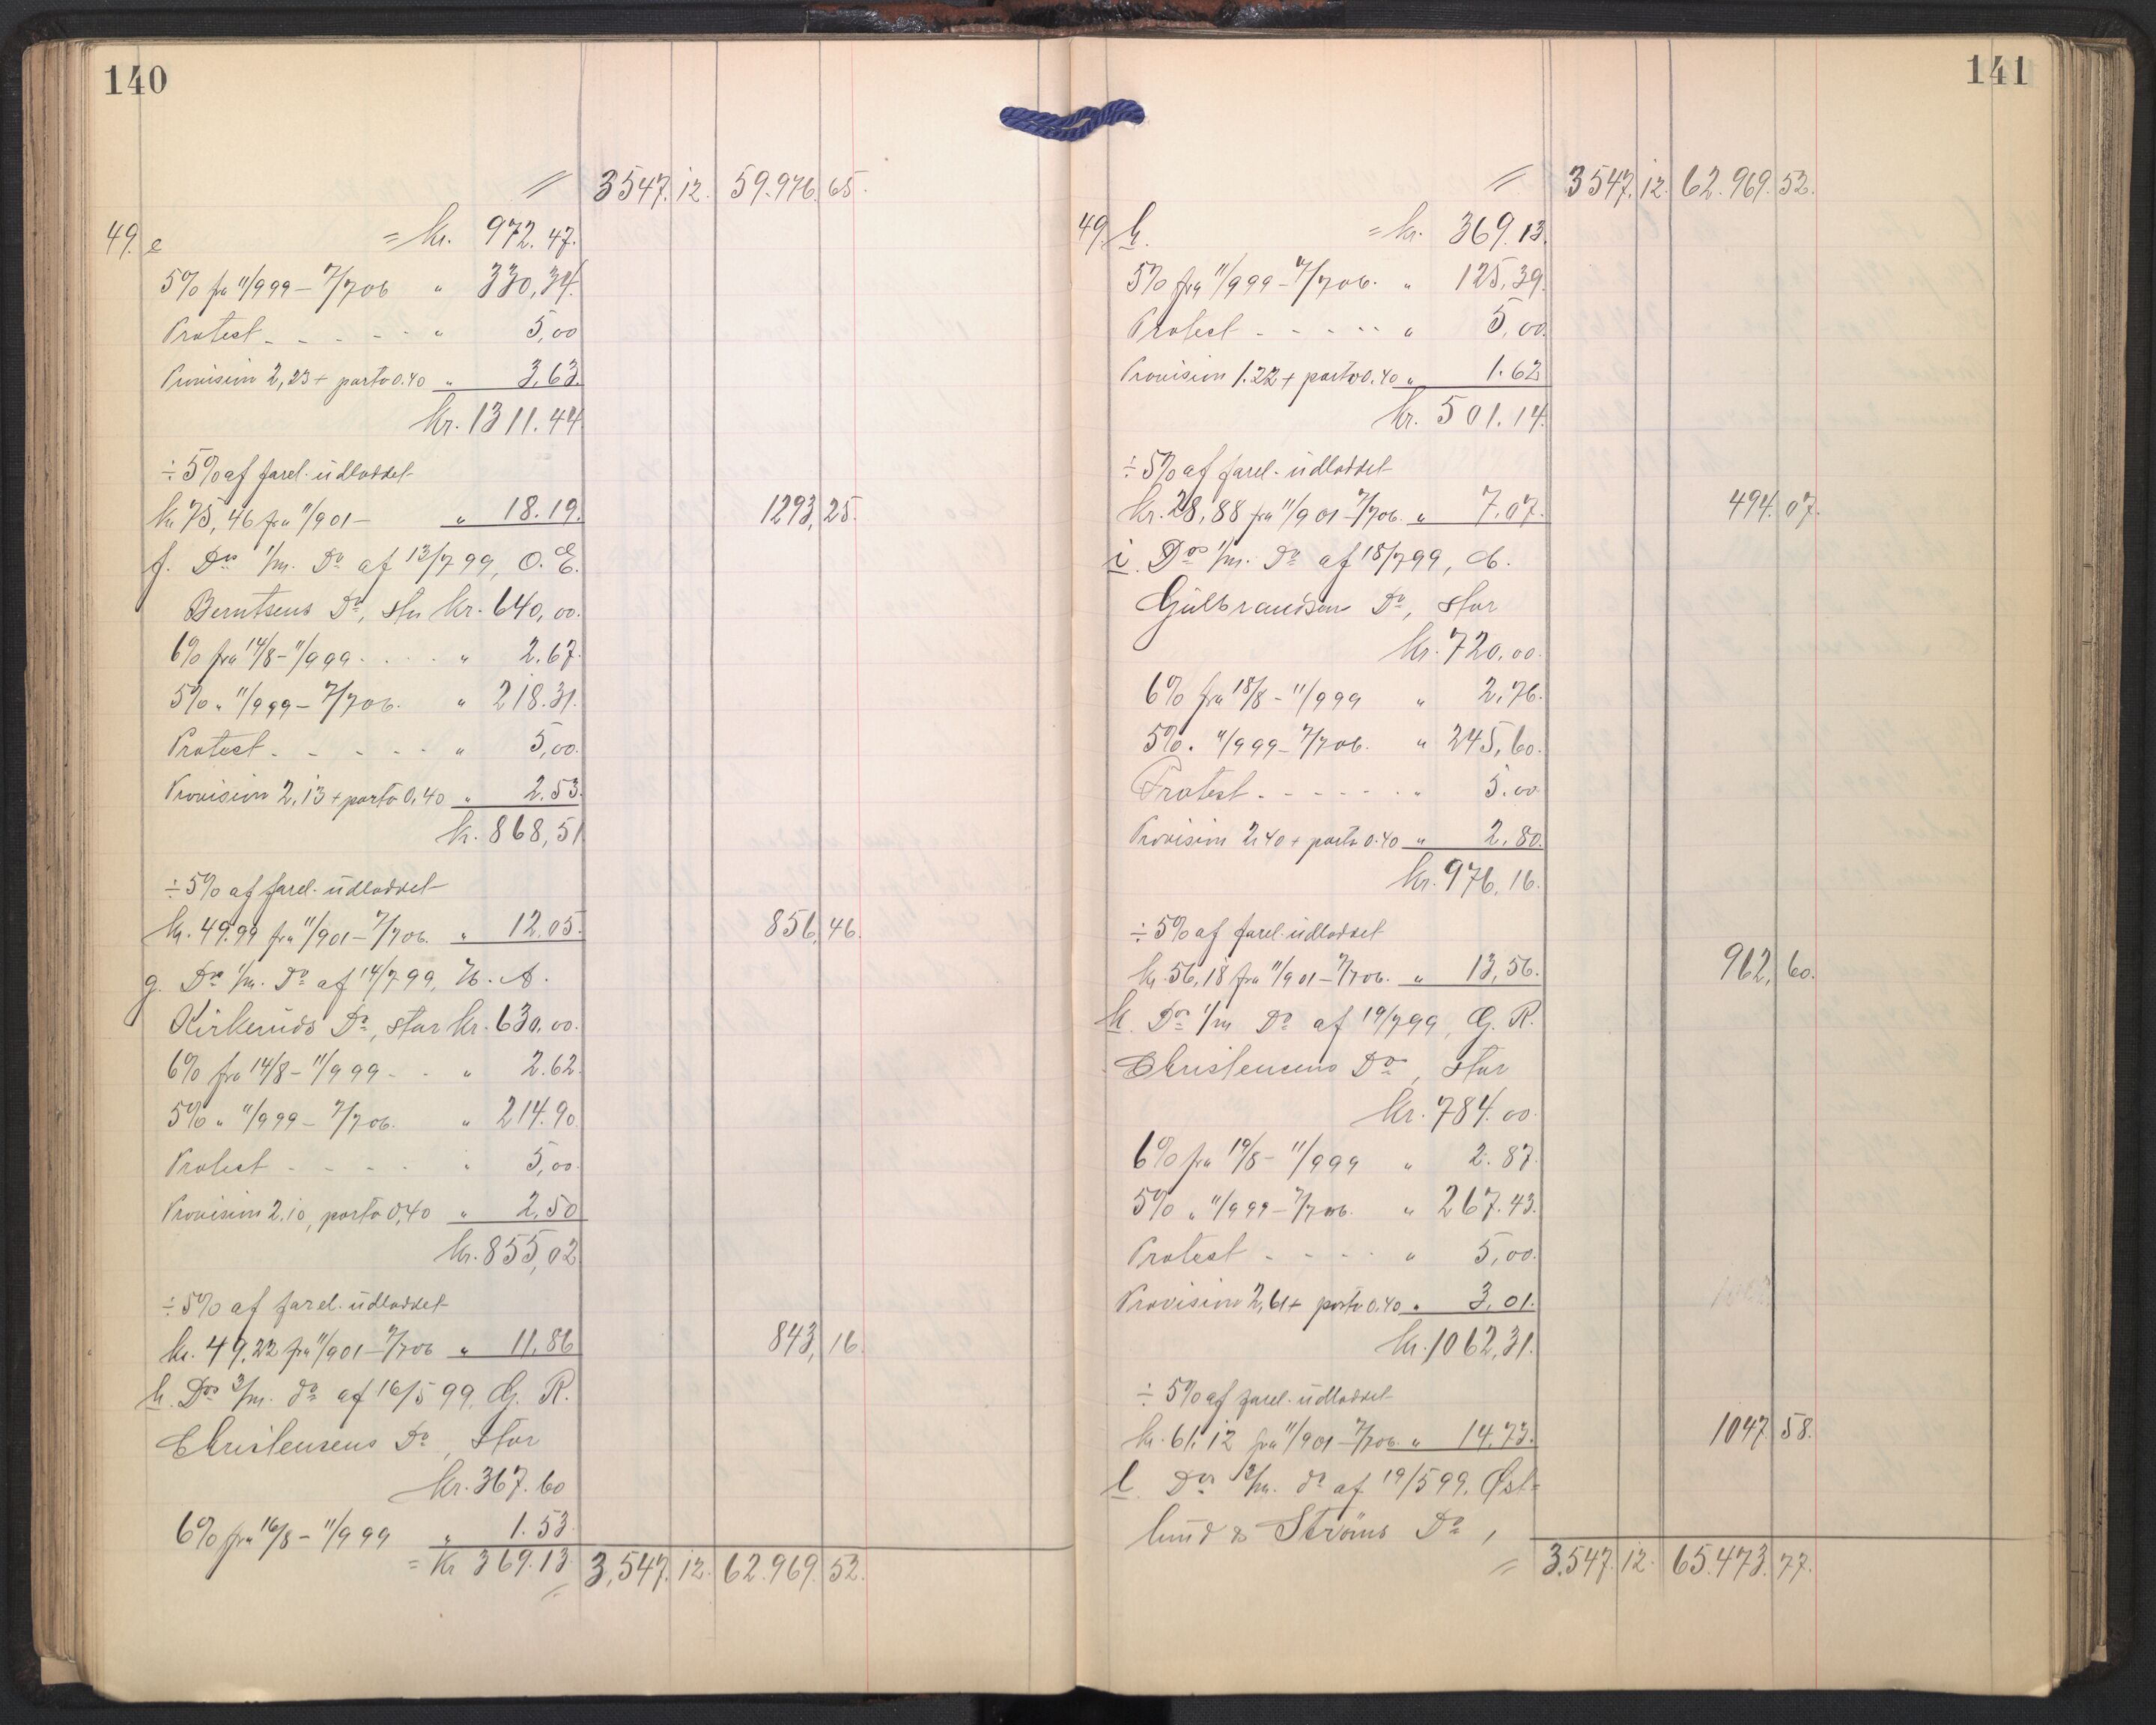 140
〃 3547.12. 59.976.65.
49. e = Kr. 972.47.
5% fra 11/9 99 – 7/7 06 " 330,34.
Protest - - - - - " 5,00
Provision 2,23 + porto 0.40 " 3,63.
Kr. 1311.44
÷ 5% af forel. udloddet
Kr. 75,46 fra 11/9 01 – " 18.19. 1293,25.
f. Dos 1/m. Do af 13/7 99, O. E.
Berntsens Do, stor Kr. 640,00.
6% fra 14/8 – 11/9 99 - - - - " 2.67.
5% " 11/9 99 – 7/7 06. " 218.31.
Protest - - - - - " 5,00.
Provision 2,13 + porto 0,40 " 2.53.
Kr. 868,51
÷ 5% af forel. udloddet
Kr. 49.99 fra 11/9 01 – 7/7 06. " 12.05. 856,46.
g. Dos 1/m. Do af 14/7 99, H. A.
Kirkeruds Do, stor Kr. 630.00.
6% fra 14/8 – 11/9 99 - - " 2.62.
5% " 11/9 99 – 7/7 06. " 214.90.
Protest - - - - " 5,00.
Provision 2.10, porto 0,40 " 2,50
Kr. 855,02
÷ 5% af forel. udloddet
Kr. 49,22 fra 11/9 01 – 7/7 06 " 11,86 843,16.
h. Dos 3/m. do af 16/5 99, G. R.
Christensens Do, stor
Kr. 367.60
6% fra 16/8 – 11/9 99 " 1.53.
= Kr 369.13. 3,547.12. 62.969.52.
141
〃 3547.12. 62.969.52.
49. h. = Kr. 369.13.
5% fra 11/9 99 – 7/7 06. " 125,39.
Protest - - - - - " 5,00.
Provision 1.22 + porto 0,40 " 1.62
Kr. 501.14.
÷ 5% af forel. udloddet
Kr. 28,88 fra 11/9 01 – 7/7 06. " 7.07. 494.07.
i. Dos 1/m. Do af 18/7 99,
Gulbrandsens Do, stor
Kr. 720,00.
6% fra 18/8 – 11/9 99 " 2,76.
5% " 11/9 99 – 7/7 06. " 245,60.
Protest - - - - - - " 5.00
Provision 2.40 + porto 0.40 " 2,80.
Kr. 976.16.
÷ 5% af forel. udloddet
Kr. 56,18 fra 11/9 01 – 7/7 06. " 13,56. 962,60.
k. Dos 1/m Do af 19/7 99, G. R.
Christensens Do, stor
Kr. 784.00.
6% fra 19/8 – 11/9 99 " 2.87.
5% " 11/9 99 – 7/7 06. " 267.43.
Protest - - - - " 5,00.
Provision 2,61 + porto 0,40 " 3,01.
Kr. 1062,31.
÷ 5% af forel. udloddet
Kr. 61.12 fra 11/9 01 – 7/7 06. " 14.73. 1047.58.
l. Dos 3/m. do af 19/5 99, Øst=
lund & Strøms Do,
〃 3.547.12. 65.473.77.